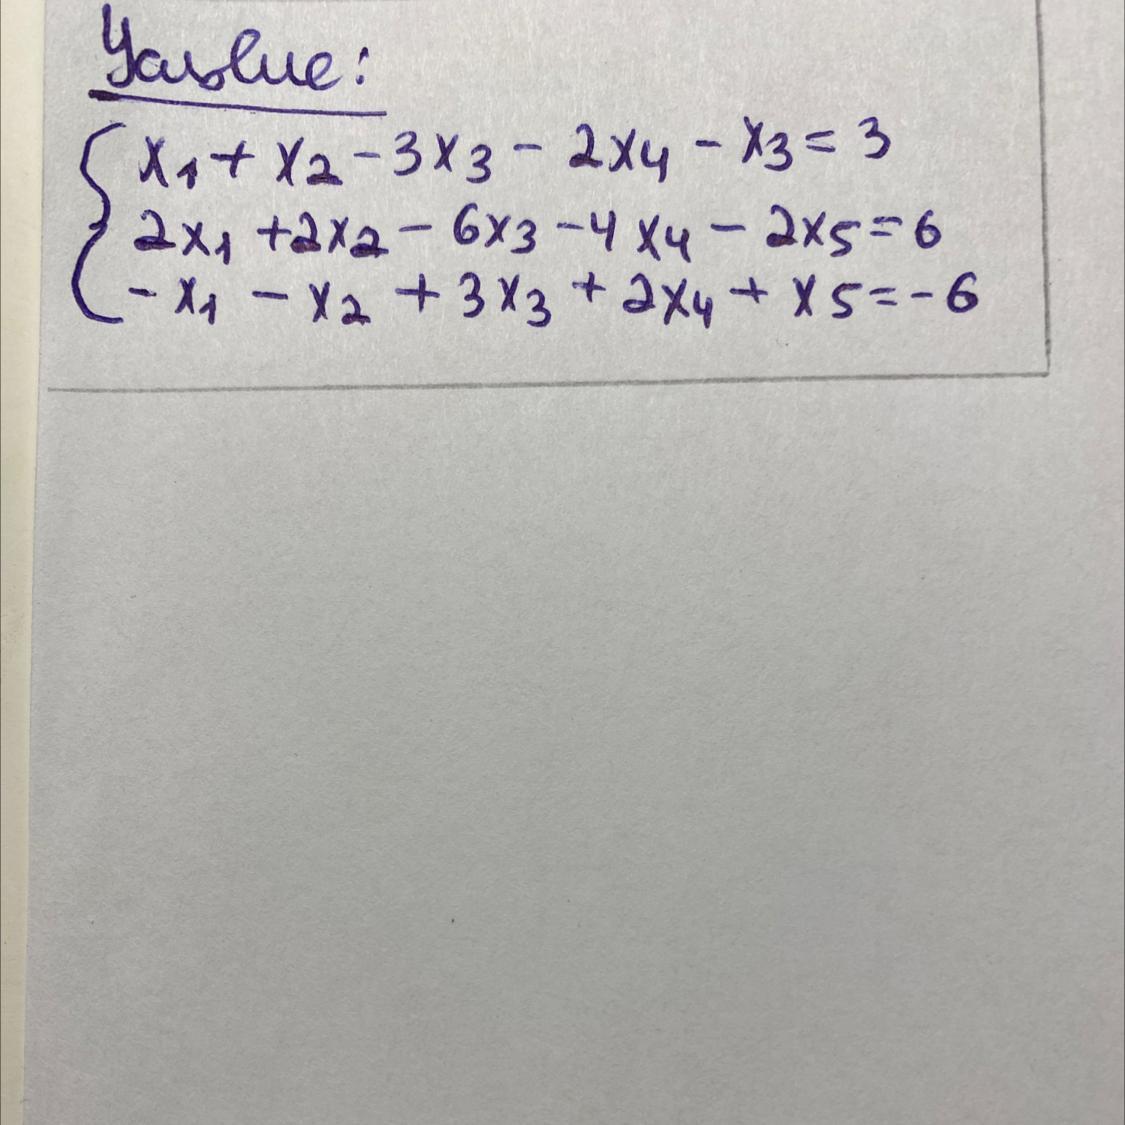 Условие:
x₁ + x₂ - 3x₃ - 2x₄ - x₃ = 3
2x₁ + 2x₂ - 6x₃ - 4x₄ - 2x₅ = 6
-x₁ - x₂ + 3x₃ + 2x₄ + x₅ = -6